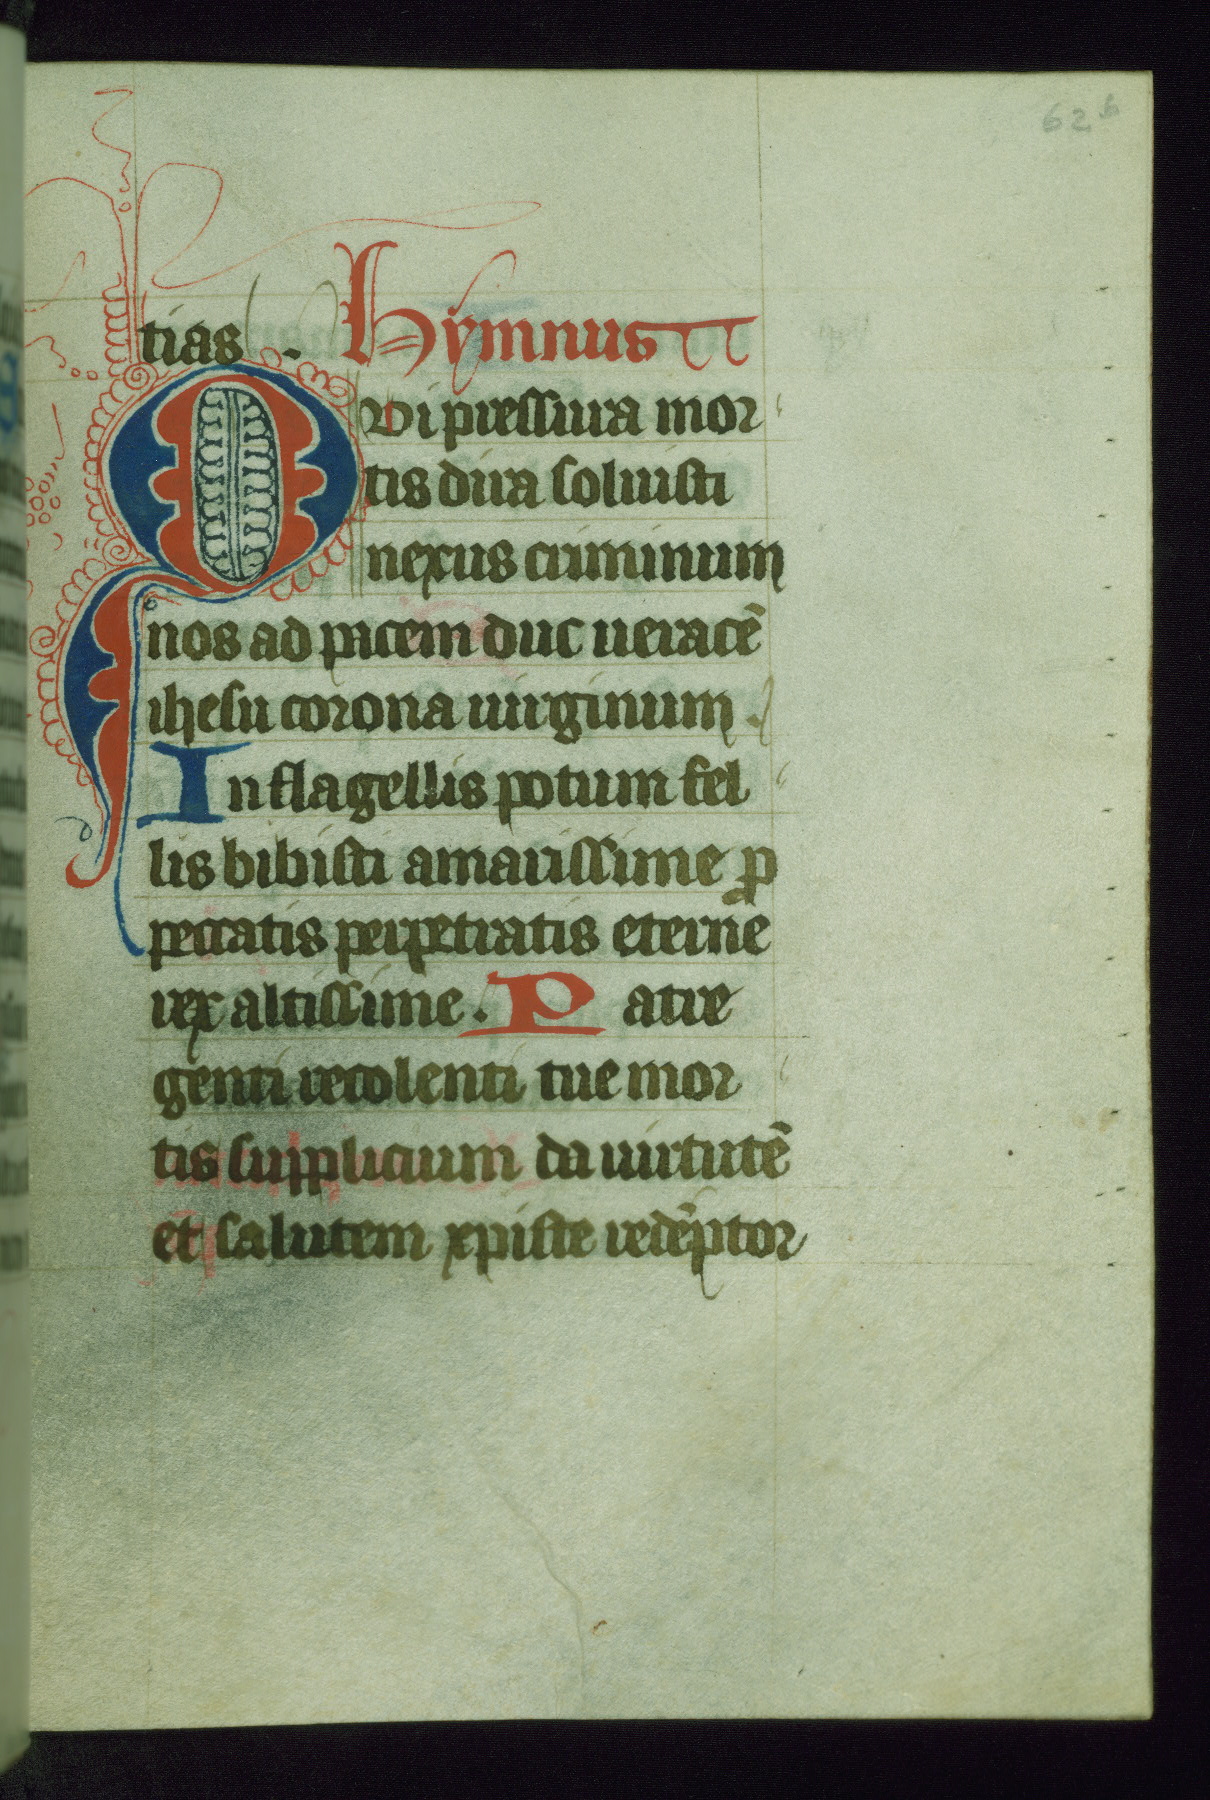 62 b
tias . Hymnus
Qvi pressura mor
tis dura soluisti
nexus criminum
nos ad pacem duc ueracē
ihesu corona uirginum .
In flagellis potum fel
lis bibisti amarissime ꝓ
peccatis perpetratis eterne
rex altissime . Patre
genti recolenti tue mor
tis supplicium da uirtutē
et salutem xpiste redēptor